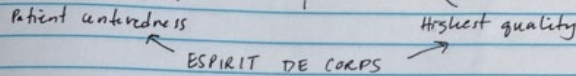 Patient centeredness Highest quality
ESPIRIT DE CORPS